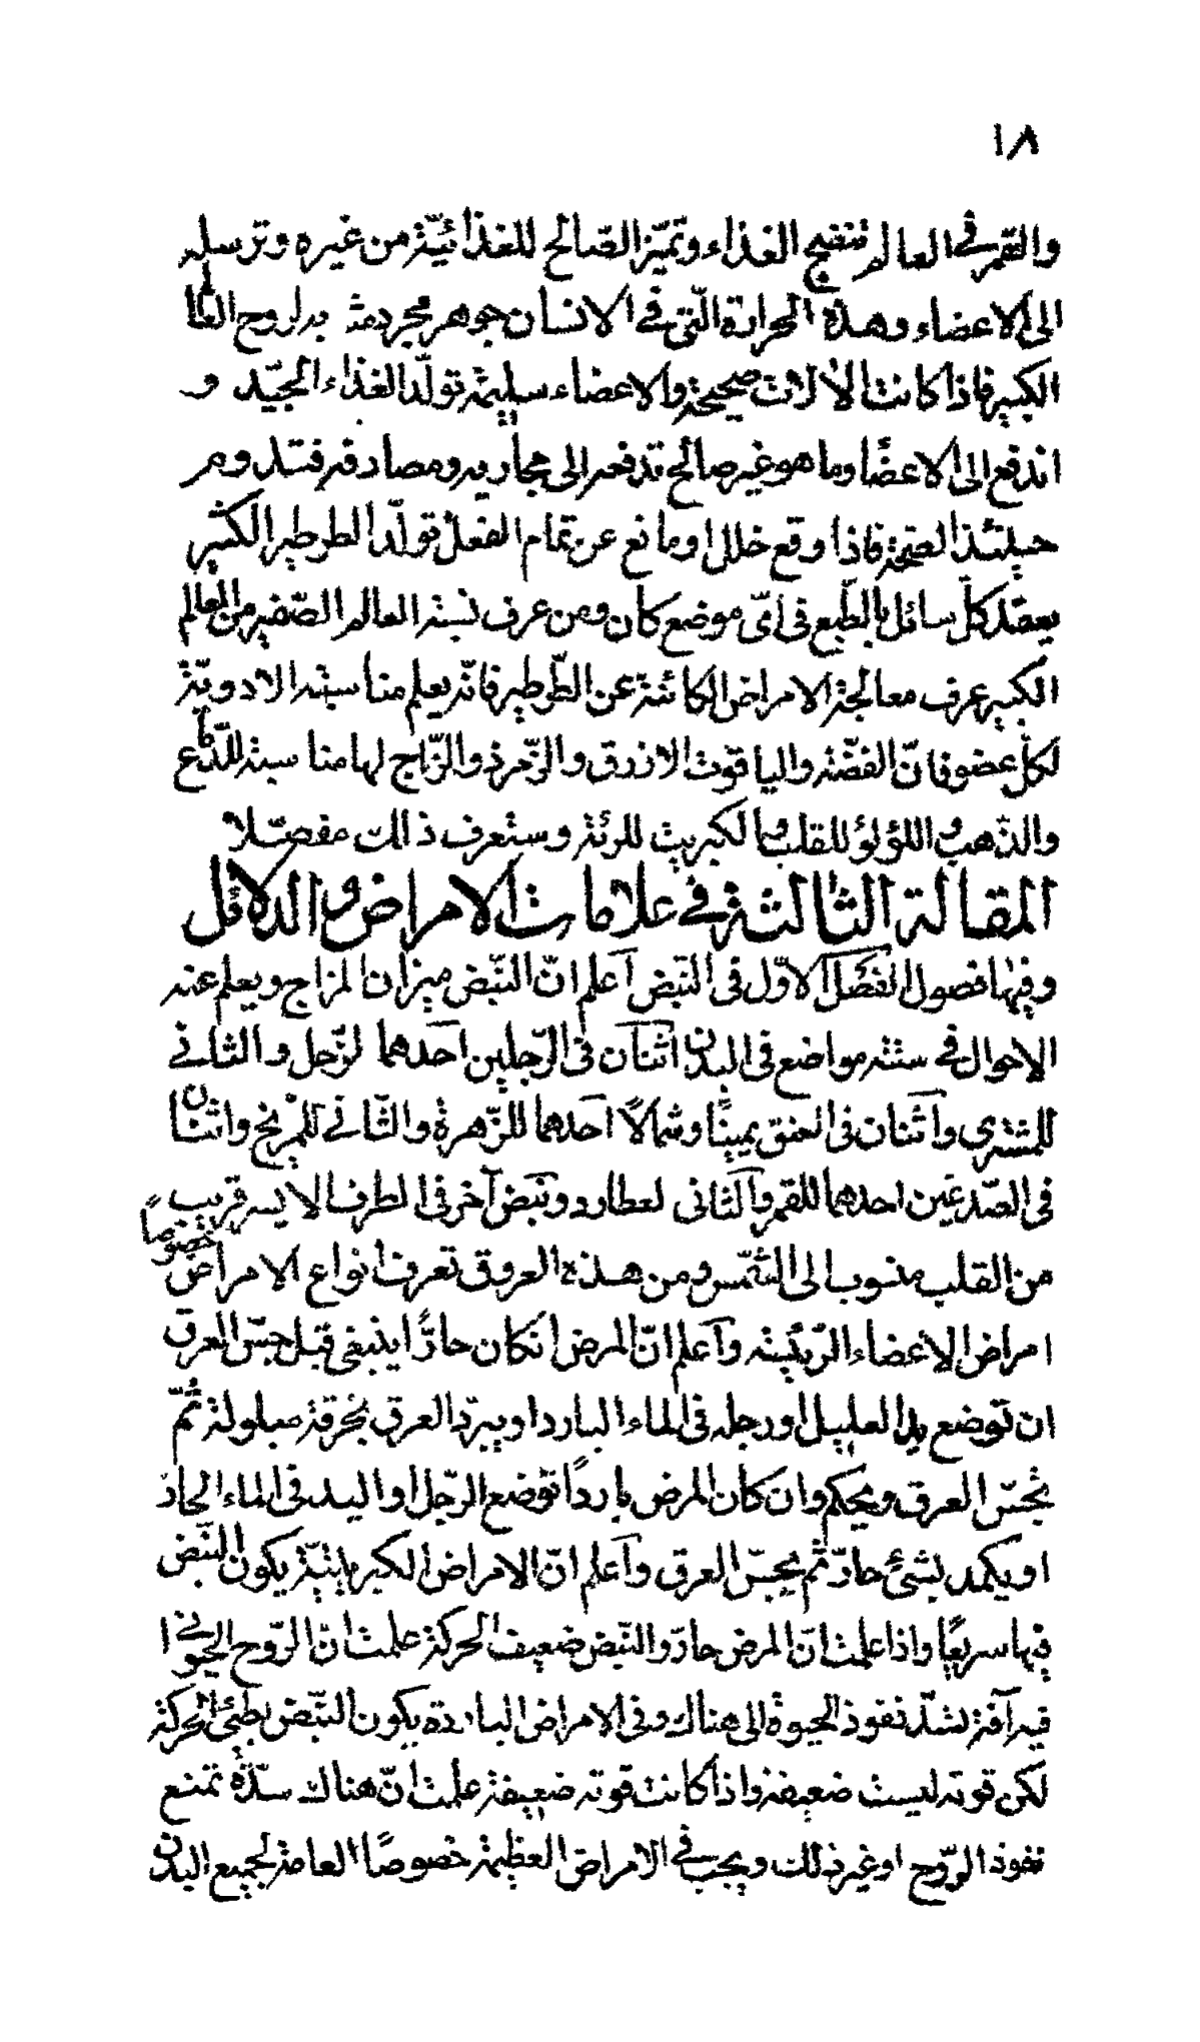 ١٨
والقمر في العالم تنضج الغذاء وتميّز الصّالح للغذائيّة من غيره وترسله
الى الاعضاء وهذه الحرارة الّتي في الانسان جوهر مجرد مدبر لروح العالم
الكبير فاذا كانت الالات صحيحة والاعضاء سليمة تولّد الغذاء الجيّد و
اندفع الى الاعضاء وما هو غير صالح تدفعه الى مجاريه ومصادفه فتدوم
حينئذ الصحّة فاذا وقع خلل او مانع عن تمام الفعل تولّد الطرطير الكثير
يعقد كلّ سائل بالطّبع في ايّ موضع كان ومن عرف نسبة العالم الصّغير من العالم
الكبير عرف معالجة الامراض الكائنة عن الطّرطير فانّه يعلم مناسبة الادويّة
لكلّ عضو فانّ الفضّة والياقوت الازرق والزّمرد والزّاج لها مناسبة للدّماغ
والذّهب و اللؤلؤ للقلب و الكبريت للرئة وستعرف ذالك مفصّلا
المقالة الثالثة في علامات الامراض و الدلائل
وفيها فصول الفصل الاوّل في النّبض اعلم انّ النّبض ميزان المزاج ويعلم عنه
الاحوال في ستة مواضع في البدن اثنان في الرّجلين احدهما لزّحل والثاني
للمشتري واثنان في العنق يمينًا وشمالًا احدهما للزّهرة والثّاني للمرّيخ واثنان
في الصّدغين احدهما للقمر والثّاني لعطارد ونبض آخر في الطرف الايسر قريب
من القلب منسوب الى الشّمس ومن هذه العروق تعرف انواع الامراض خصوصاً
امراض الاعضاء الرّئيسة واعلم انّ المرض انكان حارًّا ينبغي قبل جسّ العرق
ان توضع يد العليل او رجله في الماء البارد او يبرّد العرق بخرقة مبلولة ثمّ
يجسّ العرق ويحكم وان كان المرض باردًا توضع الرّجل او اليد في الماء الحارّ
او يكمد بشئ حارّ ثمّ يجسّ العرق واعلم انّ الامراض الكبريتيّة يكون النّبض
فيها سريعًا واذا علمت انّ المرض حارّ والنّبض ضعيف الحركة علمت انّ الرّوح الحيواني
فيه آفة تسدّ نفوذ الحيوة الى هناك وفي الامراض الباردة يكون النّبض بطئ الحركة
لكن قوته ليست ضعيفة واذا كانت قوته ضعيفة علمت انّ هناك سدّة تمنع
نفوذ الرّوح او غير ذلك ويجب في الامراض العظيمة خصوصًا العامة لجميع البدن